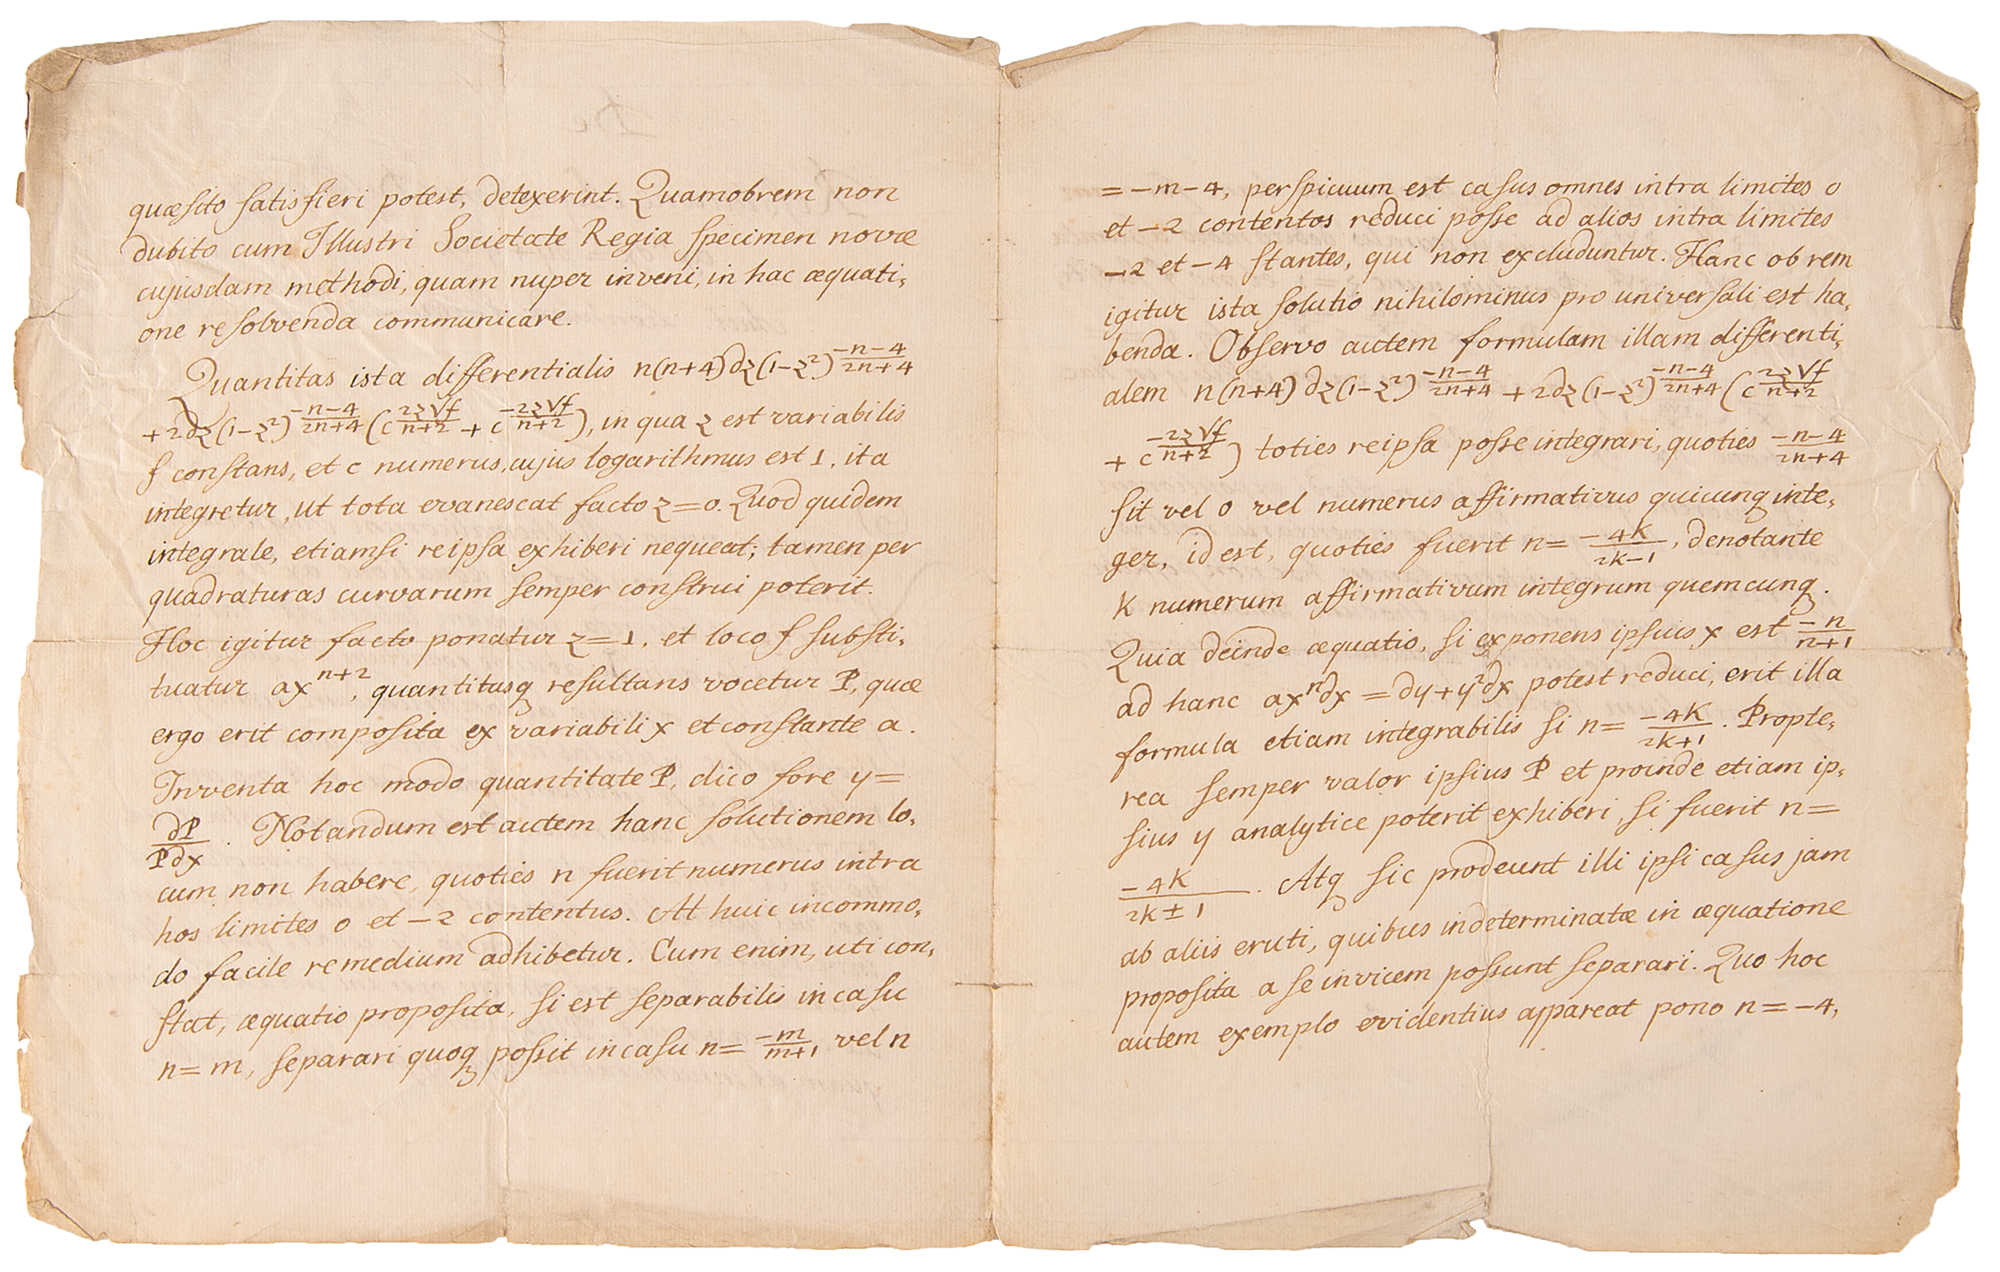 quæsito satisfieri potest, detexerint. Quamobrem non
dubito cum Illustri Societate Regia specimen novæ
cujusdam methodi, quam nuper inveni, in hac æquati,
one resolvenda communicare.
Quantitas ista differentialis n(n+4)dz(1-z²)^{\frac{-n-4}{2n+4}}
+2dz(1-z²)^{\frac{-n-4}{2n+4}}(c^{\frac{2z√f}{n+2}}+c^{\frac{-2z√f}{n+2}}), in qua z est variabilis
f constans, et c numerus, cujus logarithmus est 1, ita
integretur, ut tota evanescat facto z=0. Quod quidem
integrale, etiamsi reipsa exhiberi nequeat; tamen per
quadraturas curvarum semper construi poterit.
Hoc igitur facto ponatur z=1, et loco f substi,
tuatur ax^{n+2}, quantitasq resultans vocetur P, quæ
ergo erit composita ex variabili x et constante a.
Inventa hoc modo quantitate P, dico fore y=
\frac{dP}{Pdx}. Notandum est autem hanc solutionem lo,
cum non habere, quoties n fuerit numerus intra
hos limites 0 et -2 contentus. At huic incommo,
do facile remedium adhibetur. Cum enim, uti con,
stat, æquatio proposita, si est separabilis in casu
n=m, separari quoq possit in casu n=\frac{-m}{m+1}, vel n
=-m-4, perspicuum est casus omnes intra limites 0
et -2 contentos reduci posse ad alios intra limites
-2 et -4 stantes, qui non excluduntur. Hanc ob rem
igitur ista solutio nihilominus pro universali est ha,
benda. Observo autem formulam illam differenti,
alem n(n+4)dz(1-z²)^{\frac{-n-4}{2n+4}}+2dz(1-z²)^{\frac{-n-4}{2n+4}}(c^{\frac{2z√f}{n+2}}
+c^{\frac{-2z√f}{n+2}}) toties reipsa posse integrari, quoties \frac{-n-4}{2n+4}
sit vel 0 vel numerus affirmativus quicunq inte,
ger, id est, quoties fuerit n=\frac{-4k}{2k-1}, denotante
k numerum affirmativum integrum quemcunq.
Quia deinde æquatio, si exponens ipsius x est \frac{-n}{n+1}
ad hanc ax^n dx=dy+y²dx potest reduci, erit illa
formula etiam integrabilis si n=\frac{-4k}{2k+1}. Propte,
rea semper valor ipsius P et proinde etiam ip,
sius y analytice poterit exhiberi, si fuerit n=
\frac{-4k}{2k±1}. Atq sic prodeunt illi ipsi casus jam
ab aliis eruti, quibus indeterminatæ in æquatione
proposita a se invicem possunt separari. Quo hoc
autem exemplo evidentius appareat pono n=-4,